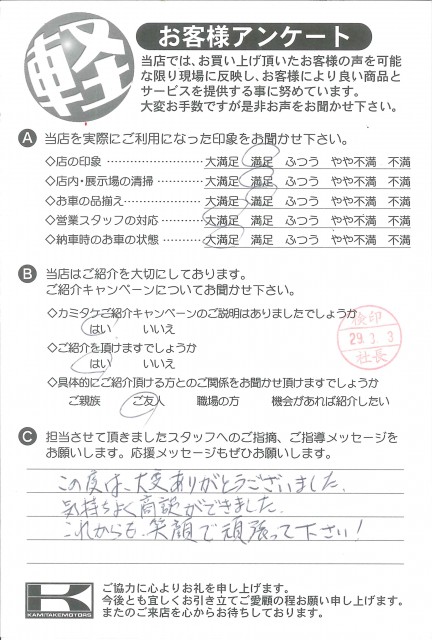 軽
お客様アンケート
当店では、お買い上げ頂いたお客様の声を可能
な限り現場に反映し、お客様により良い商品と
サービスを提供する事に努めています。
大変お手数ですが是非お声をお聞かせ下さい。
A 当店を実際にご利用になった印象をお聞かせ下さい。
◇店の印象 ………………… 大満足 満足 ふつう やや不満 不満
◇店内・展示場の清掃 ………… 大満足 満足 ふつう やや不満 不満
◇お車の品揃え ……………… 大満足 満足 ふつう やや不満 不満
◇営業スタッフの対応 ………… 大満足 満足 ふつう やや不満 不満
◇納車時のお車の状態 ………… 大満足 満足 ふつう やや不満 不満
B 当店はご紹介を大切にしております。
ご紹介キャンペーンについてお聞かせ下さい。
◇カミタケご紹介キャンペーンのご説明はありましたでしょうか
はい いいえ
◇ご紹介を頂けますでしょうか
はい いいえ
◇具体的にご紹介頂ける方とのご関係をお聞かせ頂けますでしょうか
ご親族 ご友人 職場の方 機会があれば紹介したい
検印
29.3.3
社長
C 担当させて頂きましたスタッフへのご指摘、ご指導メッセージを
お願いします。応援メッセージもぜひお願いします。
この度は、大変ありがとうございました。
気持ちよく商談ができました。
これからも、笑顔で頑張って下さい!
K
KAMITAKEMOTORS
ご協力に心よりお礼を申し上げます。
今後とも宜しくお引き立てご愛顧の程お願い申し上げます。
またのご来店を心からお待ちしております。